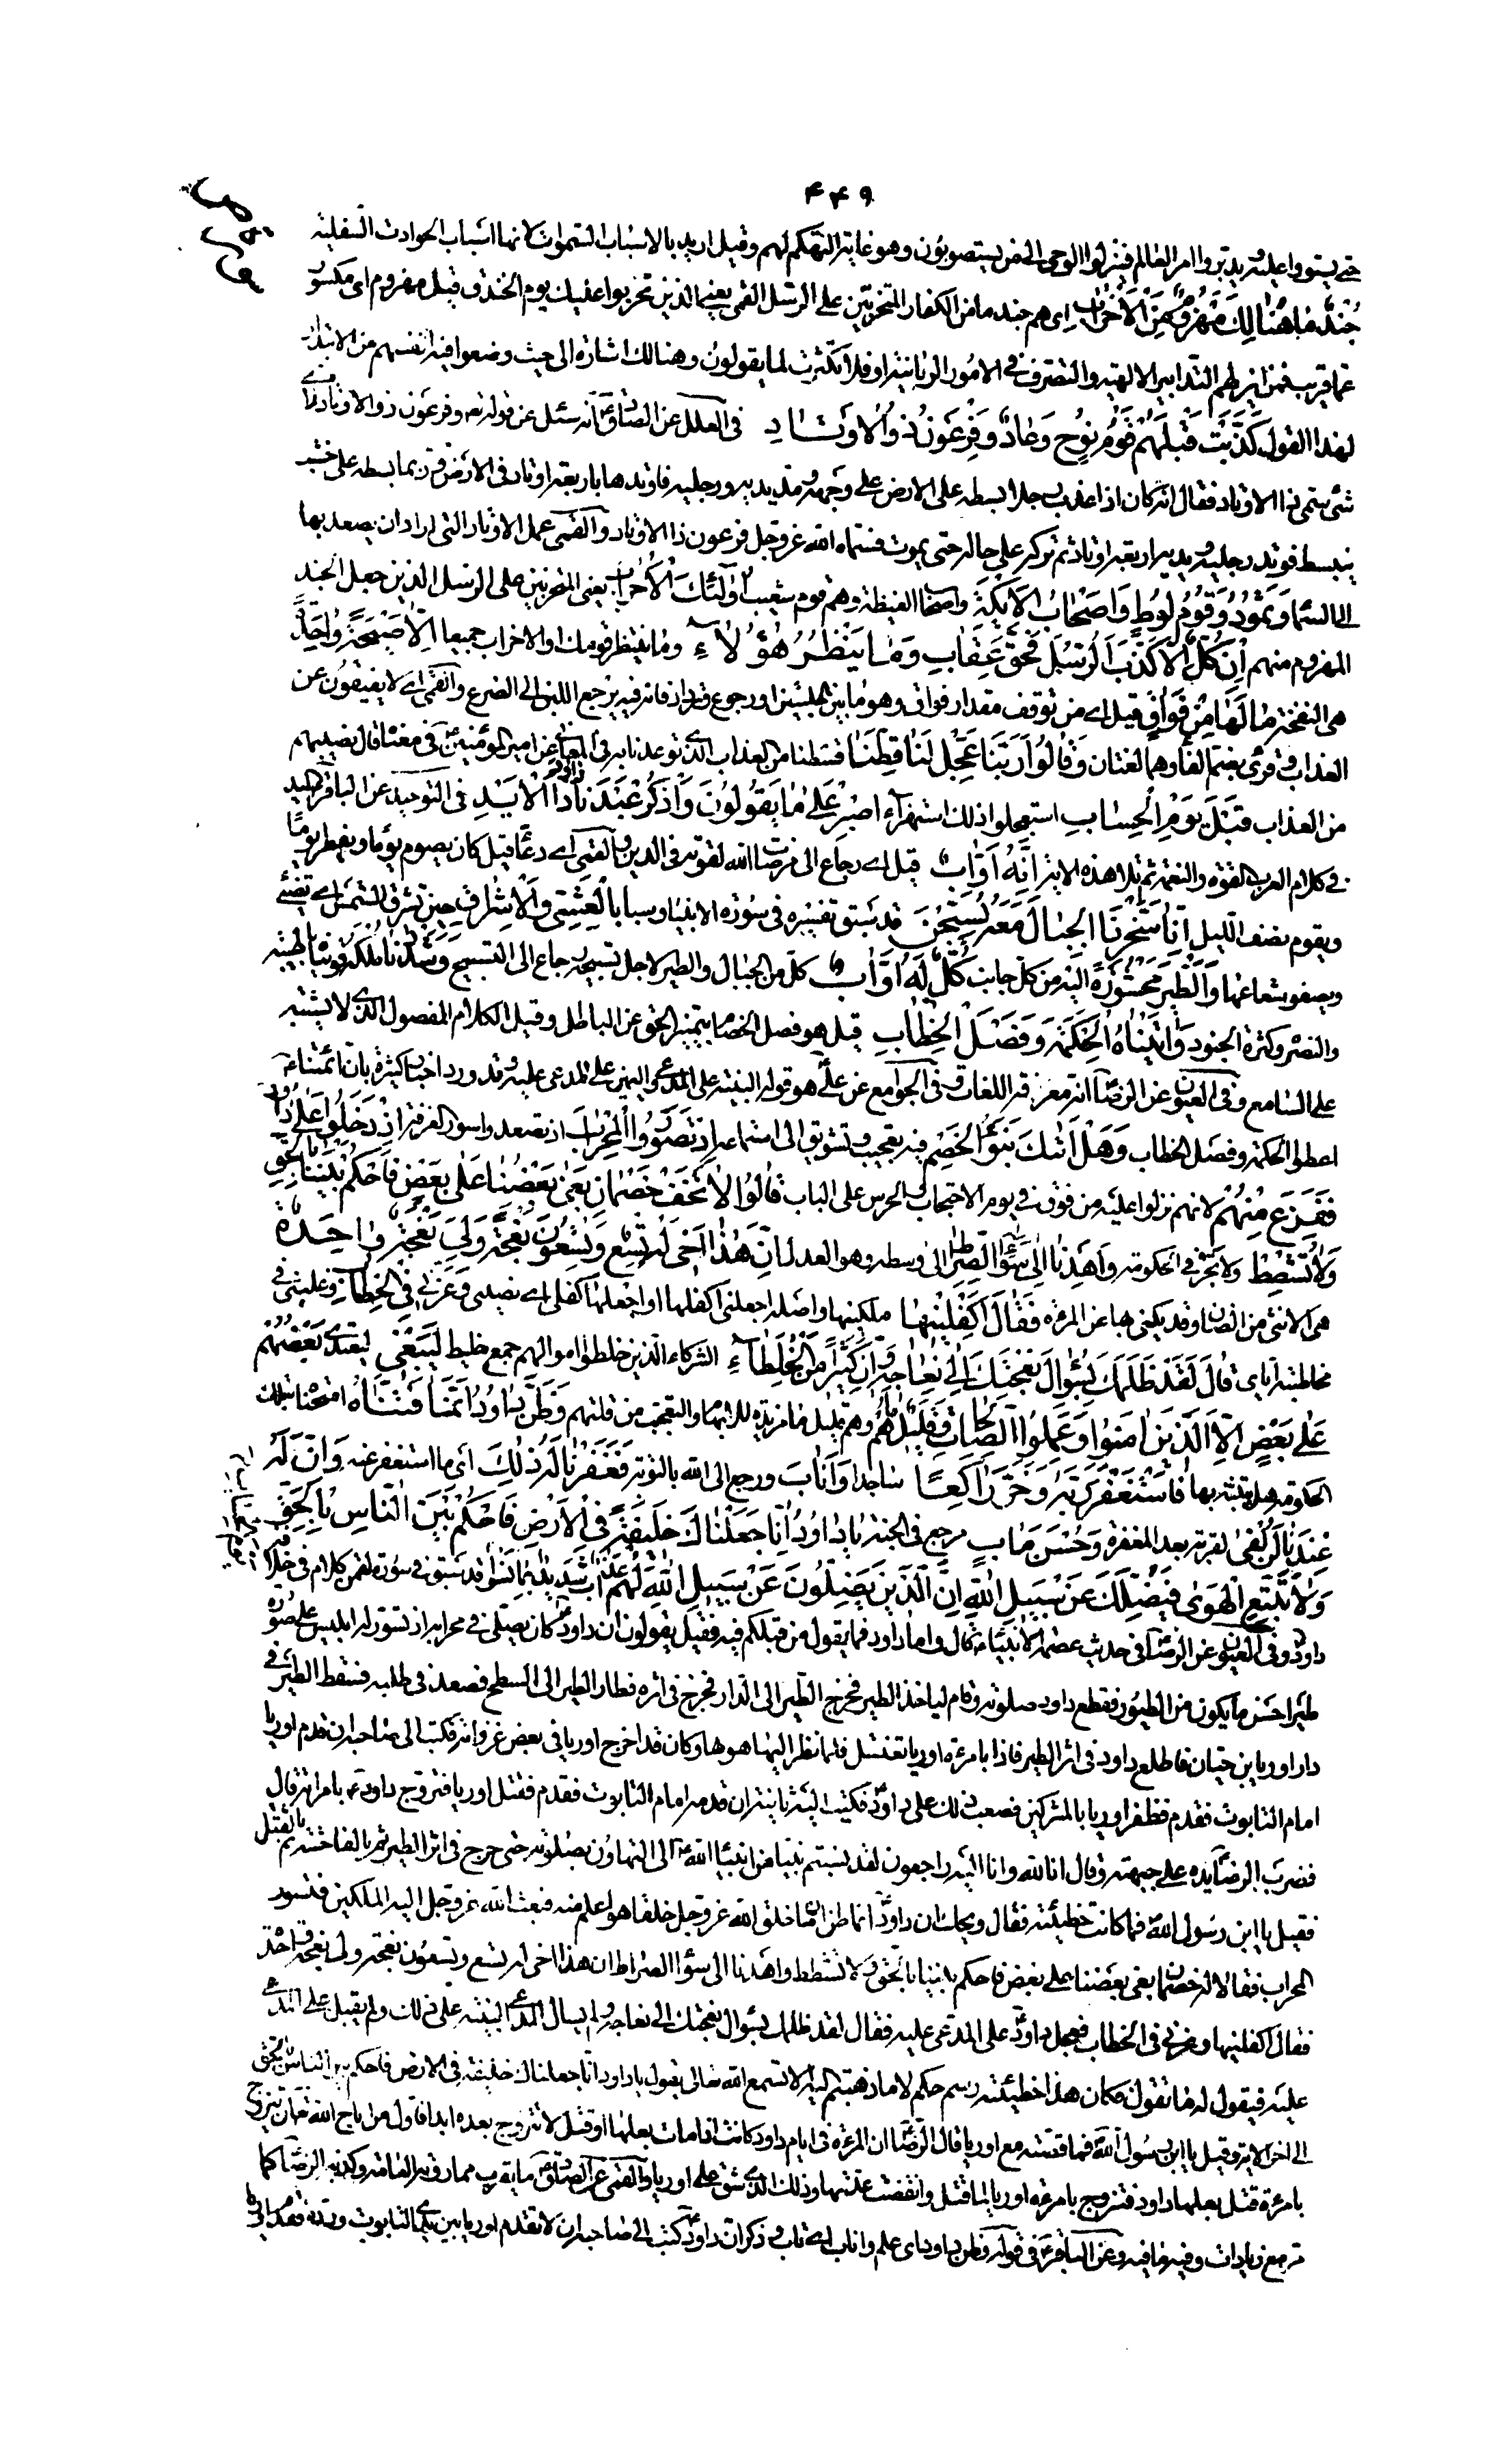 ۴۴۹
حتى يستووا عليه ويدبروا امر العالم فينزلوا الوحى الى من يستصوبون وهو غاية التهكم لهم وقيل اريد بالاسباب السموات لانها اسباب الحوادث السفلية
جُنْدٌ مَا هُنَالِكَ مَهْزُومٌ مِنَ الْأَحْزَابِ اى هم جند ما من الكفار المتحزبين على الرسل القمى يعنى الذين تحزبوا عليك يوم الخندق وقيل مهزوم اى مكسور
عما قريب فمن اين لهم التدابير الالهية والتصرف فى الامور الربانية او فلا تكترث لما يقولون وهنالك اشارة الى حيث وضعوا فيه انفسهم من الانتداب
لهذا القول كَذَّبَتْ قَبْلَهُمْ قَوْمُ نُوحٍ وَعَادٌ وَفِرْعَوْنُ ذُو الْأَوْتَادِ فى العلل عن الصادق انه سئل عن قوله تعالى وفرعون ذو الاوتاد لاى
شىء سمى ذا الاوتاد فقال انه كان اذا عذب رجلا بسطه على الارض على وجهه ومد يديه ورجليه فاوتدها باربعة اوتاد فى الارض وربما بسطه على خشب
ينبسط فوتد رجليه ويديه باربعة اوتاد ثم تركه على حاله حتى يموت فسماه الله عز وجل فرعون ذا الاوتاد والقمى عمل الاوتاد التى اراد ان يصعد بها
الى السماء وَثَمُودُ وَقَوْمُ لُوطٍ وَأَصْحَابُ الْأَيْكَةِ واصحاب الغيظة وهم قوم شعيب أُولَٰئِكَ الْأَحْزَابُ يعنى المتحزبين على الرسل الذين جعل الجند
المهزوم منهم إِنْ كُلٌّ إِلَّا كَذَّبَ الرُّسُلَ فَحَقَّ عِقَابِ وَمَا يَنْظُرُ هَٰؤُلَاءِ وما ينتظر قومك او الاحزاب جميعا إِلَّا صَيْحَةً وَاحِدَةً
هى النفخة مَا لَهَا مِنْ فَوَاقٍ قيل اى من توقف مقدار فواق وهو ما بين الحلبتين او رجوع وترداد فانه فيه يرجع اللبن الى الضرع والقمى اى لا يفيقون عن
العذاب وقرئ بضم الفاء وهما لغتان وَقَالُوا رَبَّنَا عَجِّلْ لَنَا قِطَّنَا قسطنا من العذاب الذى توعدنا به فى المعانى عن امير المؤمنين فى معناه قال نصيبهم
من العذاب قَبْلَ يَوْمِ الْحِسَابِ استعجلوا ذلك استهزاء اصْبِرْ عَلَىٰ مَا يَقُولُونَ وَاذْكُرْ عَبْدَنَا دَاوُدَ ذَا الْأَيْدِ فى التوحيد عن الباقر اليد
فى كلام العرب القوة والنعمة ثم تلا هذه الاية إِنَّهُ أَوَّابٌ قيل اى رجاع الى مرضات الله لقوته فى الدين والقمى اى دعاء قيل كان يصوم يوما ويفطر يوما
ويقوم نصف الليل إِنَّا سَخَّرْنَا الْجِبَالَ مَعَهُ يُسَبِّحْنَ قد سبق تفسيره فى سورة الانبياء وسبا بِالْعَشِيِّ وَالْإِشْرَاقِ حين تشرق الشمس اى تضىء
ويصفو شعاعها وَالطَّيْرَ مَحْشُورَةً اليه من كل جانب كُلٌّ لَهُ أَوَّابٌ كل من الجبال والطير لاجل تسبيحه رجاع الى التسبيح وَشَدَدْنَا مُلْكَهُ قويناه بالهيبة
والنصر وكثرة الجنود وَآتَيْنَاهُ الْحِكْمَةَ وَفَصْلَ الْخِطَابِ قيل هو فصل الخصام بتميز الحق عن الباطل وقيل الكلام المفصول الذى لا يشتبه
على السامع وفى العيون عن الرضا انه معرفة اللغات وفى الجوامع عن على هو قوله البينة على المدعى واليمين على المدعى عليه وقد ورد اخبار كثيرة بان ائمتنا
اعطوا الحكمة وفصل الخطاب وَهَلْ أَتَاكَ نَبَؤُا الْخَصْمِ فيه تعجيب وتشويق الى استماعه إِذْ تَسَوَّرُوا الْمِحْرَابَ اذ تصعدوا سور الغرفة إِذْ دَخَلُوا عَلَىٰ دَاوُدَ
فَفَزِعَ مِنْهُمْ لانهم نزلوا عليه من فوق فى يوم الاحتجاب والحرس على الباب قَالُوا لَا تَخَفْ خَصْمَانِ بَغَىٰ بَعْضُنَا عَلَىٰ بَعْضٍ فَاحْكُمْ بَيْنَنَا بِالْحَقِّ
وَلَا تُشْطِطْ ولا تجر فى الحكومة وَاهْدِنَا إِلَىٰ سَوَاءِ الصِّرَاطِ الى وسطه وهو العدل إِنَّ هَٰذَا أَخِي لَهُ تِسْعٌ وَتِسْعُونَ نَعْجَةً وَلِيَ نَعْجَةٌ وَاحِدَةٌ
هى الانثى من الضان وقد يكنى بها عن المرءة فَقَالَ أَكْفِلْنِيهَا ملكنيها واصله اجعلنى اكفلها او اجعلها كفلى اى نصيبى وَعَزَّنِي فِي الْخِطَابِ وغلبنى فى
مخاطبته اياى قَالَ لَقَدْ ظَلَمَكَ بِسُؤَالِ نَعْجَتِكَ إِلَىٰ نِعَاجِهِ وَإِنَّ كَثِيرًا مِنَ الْخُلَطَاءِ الشركاء الذين خلطوا اموالهم جمع خليط لَيَبْغِي ليتعدى بَعْضُهُمْ
عَلَىٰ بَعْضٍ إِلَّا الَّذِينَ آمَنُوا وَعَمِلُوا الصَّالِحَاتِ وَقَلِيلٌ مَا هُمْ وهم قليل ما مزيدة للابهام والتعجب من قلتهم وَظَنَّ دَاوُدُ أَنَّمَا فَتَنَّاهُ امتحناه بتلك
الحكومة هل يتنبه بها فَاسْتَغْفَرَ رَبَّهُ وَخَرَّ رَاكِعًا ساجدا وَأَنَابَ ورجع الى الله بالتوبة فَغَفَرْنَا لَهُ ذَٰلِكَ اى ما استغفر عنه وَإِنَّ لَهُ
عِنْدَنَا لَزُلْفَىٰ لقربة بعد المغفرة وَحُسْنَ مَآبٍ مرجع فى الجنة يَا دَاوُدُ إِنَّا جَعَلْنَاكَ خَلِيفَةً فِي الْأَرْضِ فَاحْكُمْ بَيْنَ النَّاسِ بِالْحَقِّ
وَلَا تَتَّبِعِ الْهَوَىٰ فَيُضِلَّكَ عَنْ سَبِيلِ اللَّهِ إِنَّ الَّذِينَ يَضِلُّونَ عَنْ سَبِيلِ اللَّهِ لَهُمْ عَذَابٌ شَدِيدٌ بِمَا نَسُوا قد سبق فى سورة لقمن كلام فى خلافة
داود وفى العيون عن الرضا فى حديث عصمة الانبياء قال واما داود فما يقول من قبلكم فيه فقيل يقولون ان داود كان يصلى فى محرابه اذ تصور له ابليس على صورة
طير احسن ما يكون من الطيور فقطع داود صلوته وقام لياخذ الطير فخرج الطير الى الدار فخرج فى اثره فطار الطير الى السطح فصعد فى طلبه فسقط الطير فى
دار اوريا بن حيان فاطلع داود فى اثر الطير فاذا بامرءة اوريا تغتسل فلما نظر اليها هويها وكان قد اخرج اوريا فى بعض غزواته فكتب الى صاحبه ان قدم اوريا
امام التابوت فقدم فظفر اوريا بالمشركين فصعب ذلك على داود فكتب اليه ثانية ان قدمه امام التابوت فقدم فقتل اوريا فتزوج داود بامراته قال
فضرب الرضا يده على جبهته وقال انا لله وانا اليه راجعون لقد نسبتم نبيا من انبياء الله الى التهاون بصلوته حتى خرج فى اثر الطير ثم بالفاحشة ثم بالقتل
فقيل يا ابن رسول الله فما كانت خطيئته فقال ويحك ان داود انما ظن ان ما خلق الله عز وجل خلقا هو اعلم منه فبعث الله عز وجل اليه الملكين فتسورا
المحراب فقالا له خصمان بغى بعضنا على بعض فاحكم بيننا بالحق ولا تشطط واهدنا الى سواء الصراط ان هذا اخى له تسع وتسعون نعجة ولى نعجة واحدة
فقال اكفلنيها وعزنى فى الخطاب فعجل داود على المدعى عليه فقال لقد ظلمك بسؤال نعجتك الى نعاجه ولم يسال المدعى البينة على ذلك ولم يقبل على المدعى
عليه فيقول له ما تقول فكان هذا خطيئة رسم حكم لا ما ذهبتم اليه الا تسمع الله تعالى يقول يا داود انا جعلناك خليفة فى الارض فاحكم بين الناس بالحق
الى اخر الاية وقيل يا ابن رسول الله فما قصته مع اوريا قال الرضا ان المرءة فى ايام داود كانت اذا مات بعلها او قتل لا تتزوج بعده ابدا فاول من اباح الله تعالى ان يتزوج
بامرءة قتل بعلها داود فتزوج بامرءة اوريا لما قتل وانقضت عدتها وذلك الذى شق على اوريا والقمى عن الصادق ما يقرب مما روته العامة وكذبه الرضا كما
مر مع زيادات وفيه ما فيه وعن الباقر فى قوله وظن داود اى علم واناب اى تاب وذكر ان داود كتب الى صاحبه ان لا تقدم اوريا بين يدى التابوت ورده فقدم اوريا